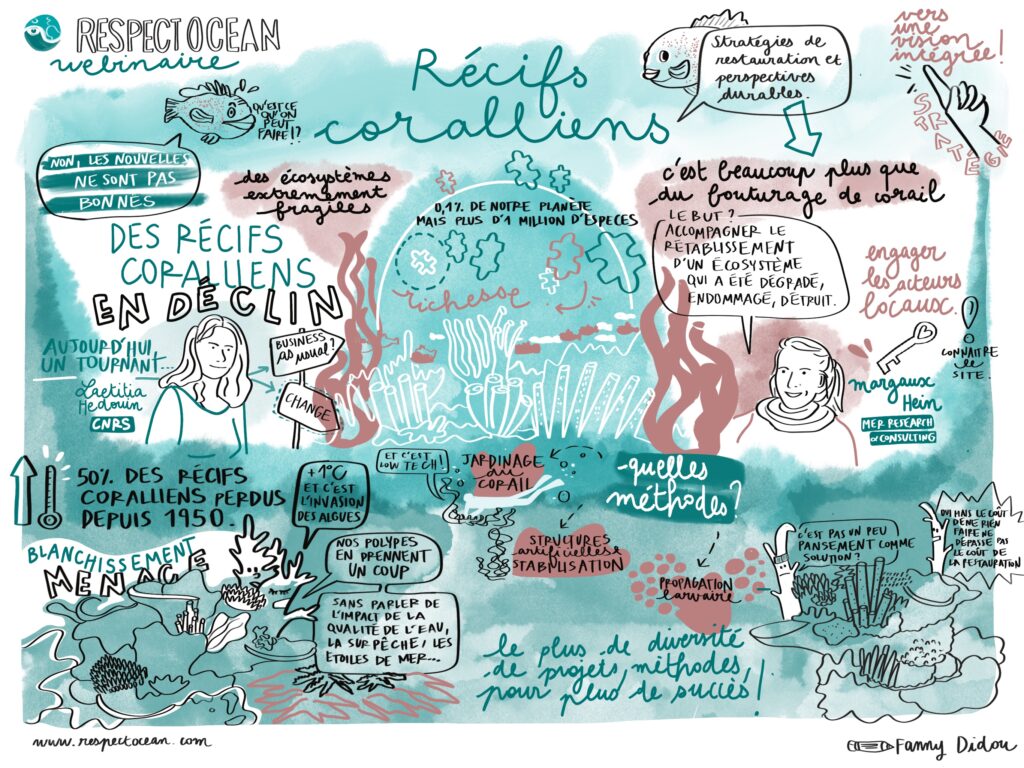 RESPECTOCEAN
webinaire
Récifs
coralliens
QU'EST CE
QU'ON
PEUT
FAIRE!?
NON, LES NOUVELLES
NE SONT PAS
BONNES
des écosystèmes
extrêmement
fragiles
DES RÉCIFS
CORALLIENS
EN DÉCLIN
AUJOURD'HUI
UN TOURNANT...
Laetitia
Hedouin
CNRS
BUSINESS
as usual?
CHANGE
0,1% DE NOTRE PLANETE
MAIS PLUS D'1 MILLION D'ESPECES
richesse
Stratégies de
restauration et
perspectives
durables.
vers
une
vision
intégrée!
STRATÉGIE
c'est beaucoup plus que
du bouturage de corail
LE BUT?
ACCOMPAGNER LE
RÉTABLISSEMENT
D'UN ÉCOSYSTÈME
QUI A ÉTÉ DÉGRADÉ,
ENDOMMAGÉ, DÉTRUIT.
engager
les acteurs
locaux.
CONNAITRE
le
SITE.
margaux
Hein
MER RESEARCH
& CONSULTING
50% DES RÉCIFS
CORALLIENS PERDUS
DEPUIS 1950.
+1°C
ET C'EST
L'INVASION
DES ALGUES
BLANCHISSEMENT
MENACE
NOS POLYPES
EN PRENNENT
UN COUP
SANS PARLER DE
L'IMPACT DE LA
QUALITÉ DE L'EAU,
LA SUR PÊCHE, LES
ÉTOILES DE MER...
ET C'EST
LOW TECH!
JARDINAGE
du
CORAIL
-quelles
méthodes?
STRUCTURES
artificielles &
STABILISATION
PROPAGATION
larvaire
C'EST PAS UN PEU
PANSEMENT COMME
SOLUTION?
OUI MAIS LE COÛT
DE NE RIEN
FAIRE NE
DÉPASSE PAS
LE COÛT DE
LA RESTAURATION
le plus de diversité
de projets, méthodes,
pour plus de succès!
www.respectocean.com
Fanny Didou